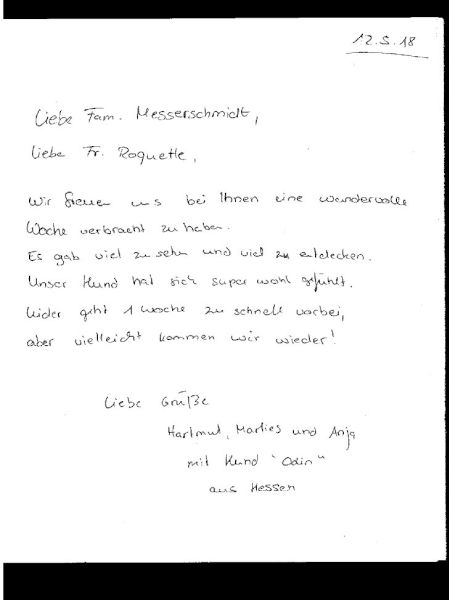 12.5.18
Liebe Fam. Messerschmidt,
Liebe Fr. Roquette,
Wir freuen uns bei Ihnen eine wundervolle
Woche verbracht zu haben.
Es gab viel zu sehn und viel zu entdecken.
Unser Hund hat sich super wohl gefühlt.
Leider geht 1 Woche zu schnell vorbei,
aber vielleicht kommen wir wieder!
Liebe Grüße
Hartmut, Marlies und Anja
mit Hund "Odin"
aus Hessen